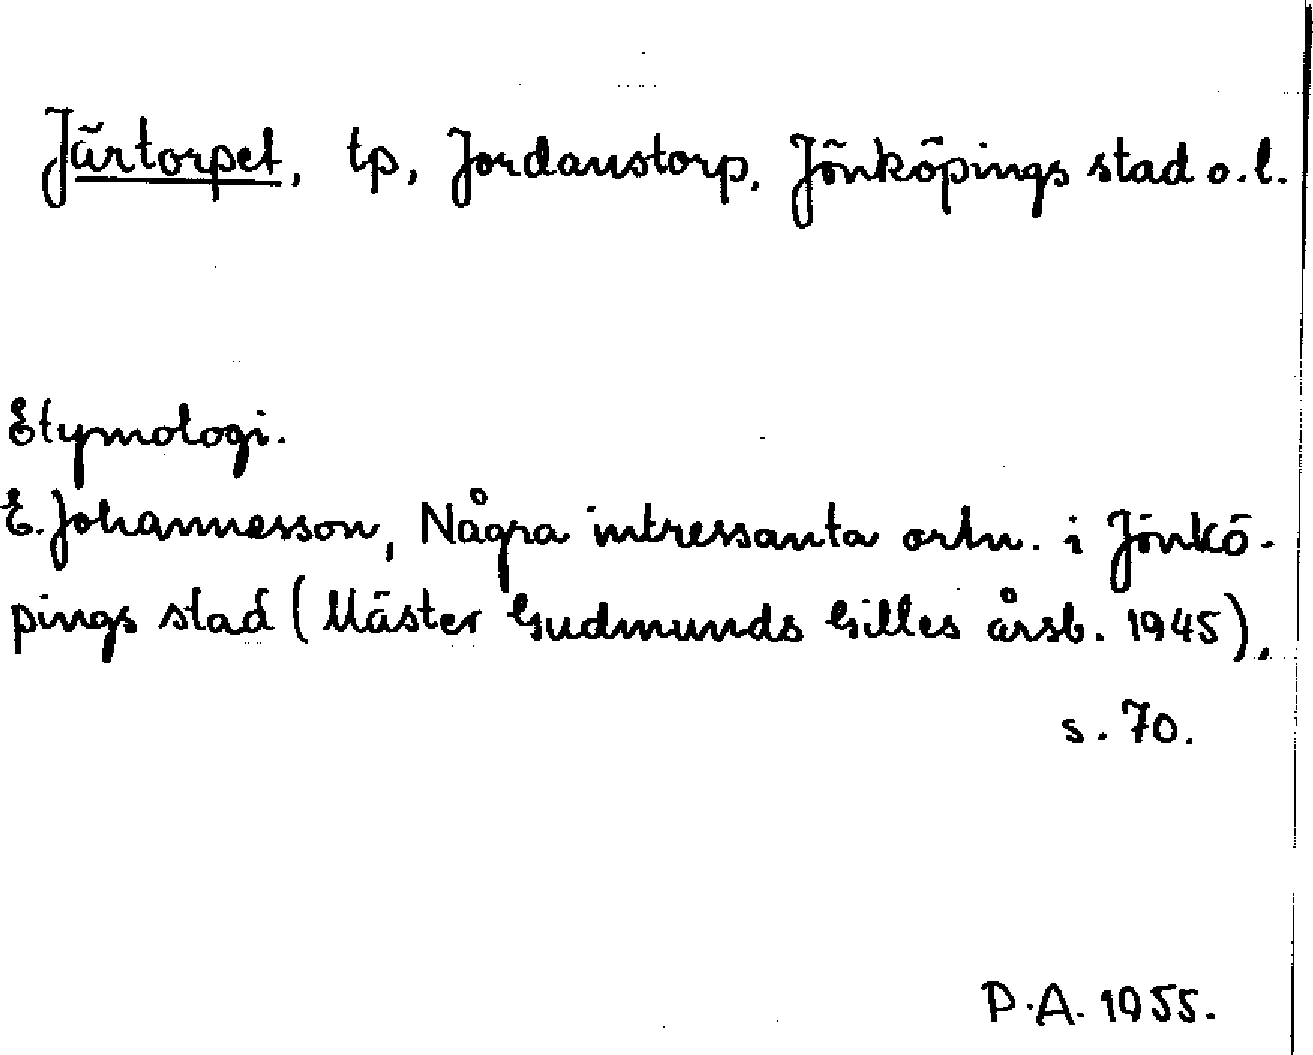 Järtorpet, tp, Jordanstorp, Jönköpings stad o. l.
Etymologi.
E. Johannesson, Några intressanta ortn. i Jönkö-
pings stad (Mäster Gudmunds Gilles årsb. 1945),
s. 70.
P.A. 1955.